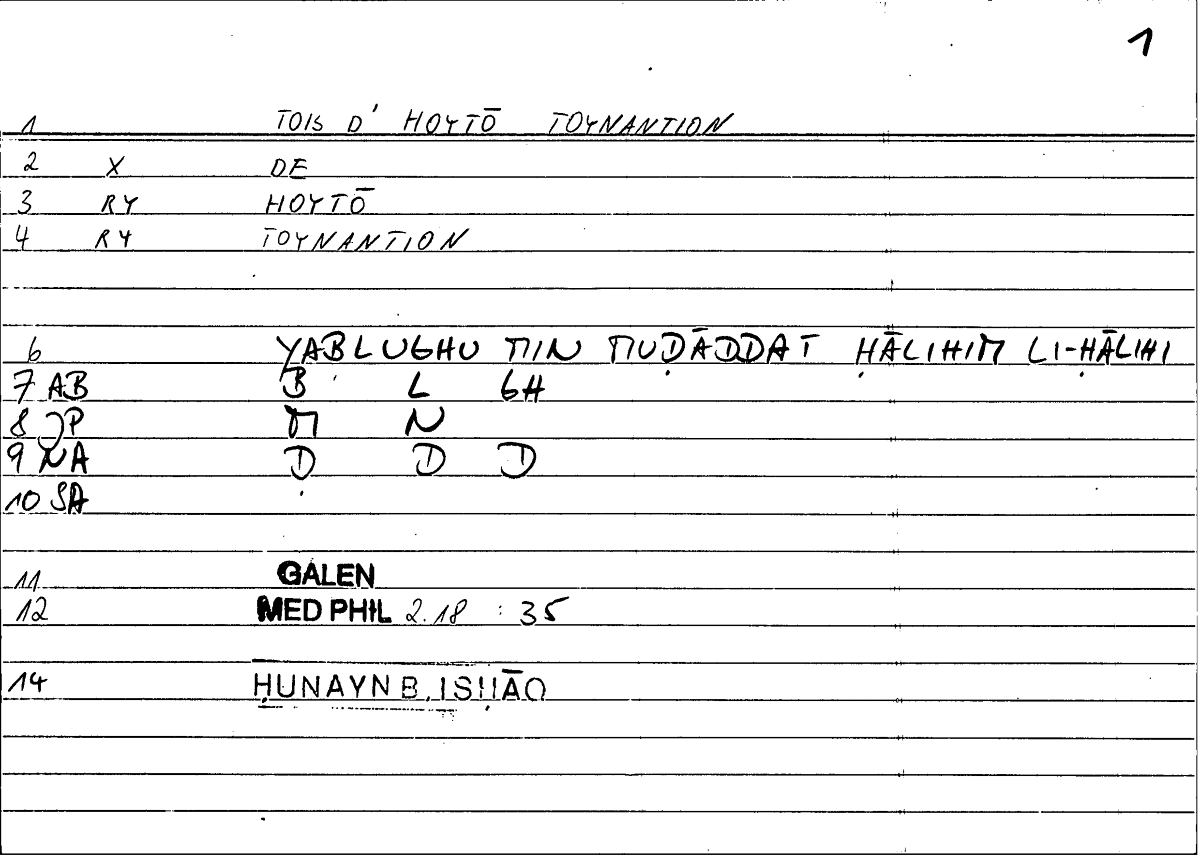 1
1 TOIS D' HOYTŌ TOYNANTION
2 X DE
3 RY HOYTŌ
4 RY TOYNANTION
6 YABLUGHU MIN MUḌĀDDAT ḤĀLIHIM LI-ḤĀLIHI
7 AB B L GH
8 JP M N
9 NA Ḍ D D
10 SA
11 GALEN
12 MED PHIL 2.18 : 35
14 ḤUNAYN B. ISḤĀQ